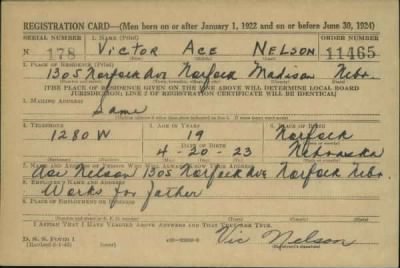 REGISTRATION CARD—(Men born on or after January 1, 1922 and on or before June 30, 1924)
SERIAL NUMBER 1. NAME (Print) ORDER NUMBER
N 178 VICTOR ACE NELSON 11465
2. PLACE OF RESIDENCE (Print)
1305 Norfolk Ave Norfolk Madison Nebr.
[THE PLACE OF RESIDENCE GIVEN ON THE LINE ABOVE WILL DETERMINE LOCAL BOARD
JURISDICTION; LINE 2 OF REGISTRATION CERTIFICATE WILL BE IDENTICAL]
3. MAILING ADDRESS
Same
4. TELEPHONE 5. AGE IN YEARS 6. PLACE OF BIRTH
1280 W 19 Norfolk
DATE OF BIRTH
4-20-23 Nebraska
7. NAME AND ADDRESS OF PERSON WHO WILL ALWAYS KNOW YOUR ADDRESS
Ace Nelson 1305 Norfolk Ave. Norfolk Nebr.
8. EMPLOYER'S NAME AND ADDRESS
Works for father
9. PLACE OF EMPLOYMENT OR BUSINESS
I AFFIRM THAT I HAVE VERIFIED ABOVE ANSWERS AND THAT THEY ARE TRUE.
D. S. S. FORM 1
Vic Nelson